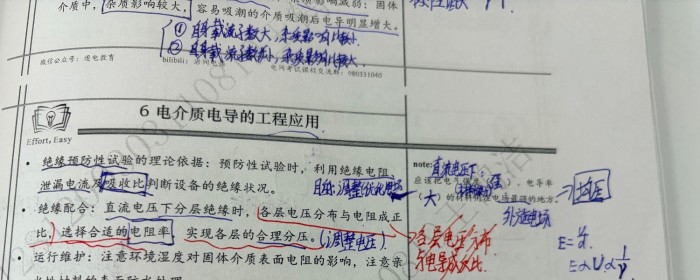 介质中，杂质影响较大，
杂质影响减弱；固体
容易吸潮的介质吸潮后电导明显增大。
① 自身载流子数大，杂质影响比较小.
② 自身载流子数小，杂质影响比较大.
微信公众号：逐电教育
bilibili：
电网考试课程交流群：
6 电介质电导的工程应用
Effort, Easy
• 绝缘预防性试验的理论依据：预防性试验时，利用绝缘电阻、
泄漏电流及吸收比判断设备的绝缘状况。
目标：调整优化电场
• 绝缘配合：直流电压下分层绝缘时，各层电压分布与电阻成正
比，选择合适的电阻率，实现各层的合理分压。(调整电压)
• 运行维护：注意环境湿度对固体介质表面电阻的影响，注意亲
水性材料的表面防水处理。
note:直流电压下：
应该把电气强度（强）、电导率
（大）的材料用在电场最强的地方。
均压
各层电压分布
与电导成反比.
E=
E∝U∝1/γ